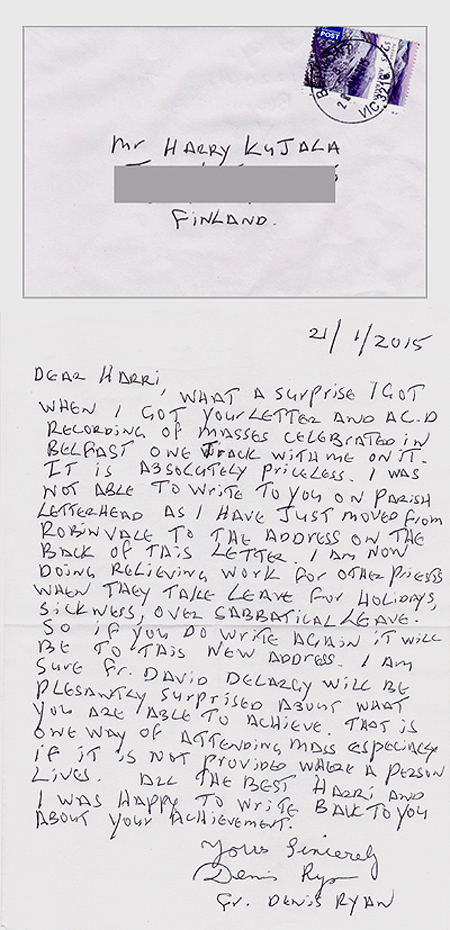 POST
VIC 3216
Mr HARRY KUJALA
FINLAND.
21/1/2015
DEAR HARRI,
WHAT A SURPRISE I GOT
WHEN I GOT YOUR LETTER AND A C.D
RECORDING OF MASSES CELEBRATED IN
BELFAST ONE TRACK WITH ME ON IT.
IT IS ABSOLUTELY PRICELESS. I WAS
NOT ABLE TO WRITE TO YOU ON PARISH
LETTERHEAD AS I HAVE JUST MOVED FROM
ROBINVALE TO THE ADDRESS ON THE
BACK OF THIS LETTER. I AM NOW
DOING RELIEVING WORK FOR OTHER PRIESTS
WHEN THEY TAKE LEAVE FOR HOLIDAYS,
SICKNESS, OVER SABBATICAL LEAVE.
SO IF YOU DO WRITE AGAIN IT WILL
BE TO THIS NEW ADDRESS. I AM
SURE Fr. DAVID DELARGY WILL BE
PLESANTLY SURPRISED ABOUT WHAT
YOU ARE ABLE TO ACHIEVE. THAT IS
ONE WAY OF ATTENDING MASS ESPECIALLY
IF IT IS NOT PROVIDED WHERE A PERSON
LIVES. ALL THE BEST HARRI AND
I WAS HAPPY TO WRITE BACK TO YOU
ABOUT YOUR ACHIEVEMENT.
Yours Sincerely
Denis Ryan
Fr. DENIS RYAN